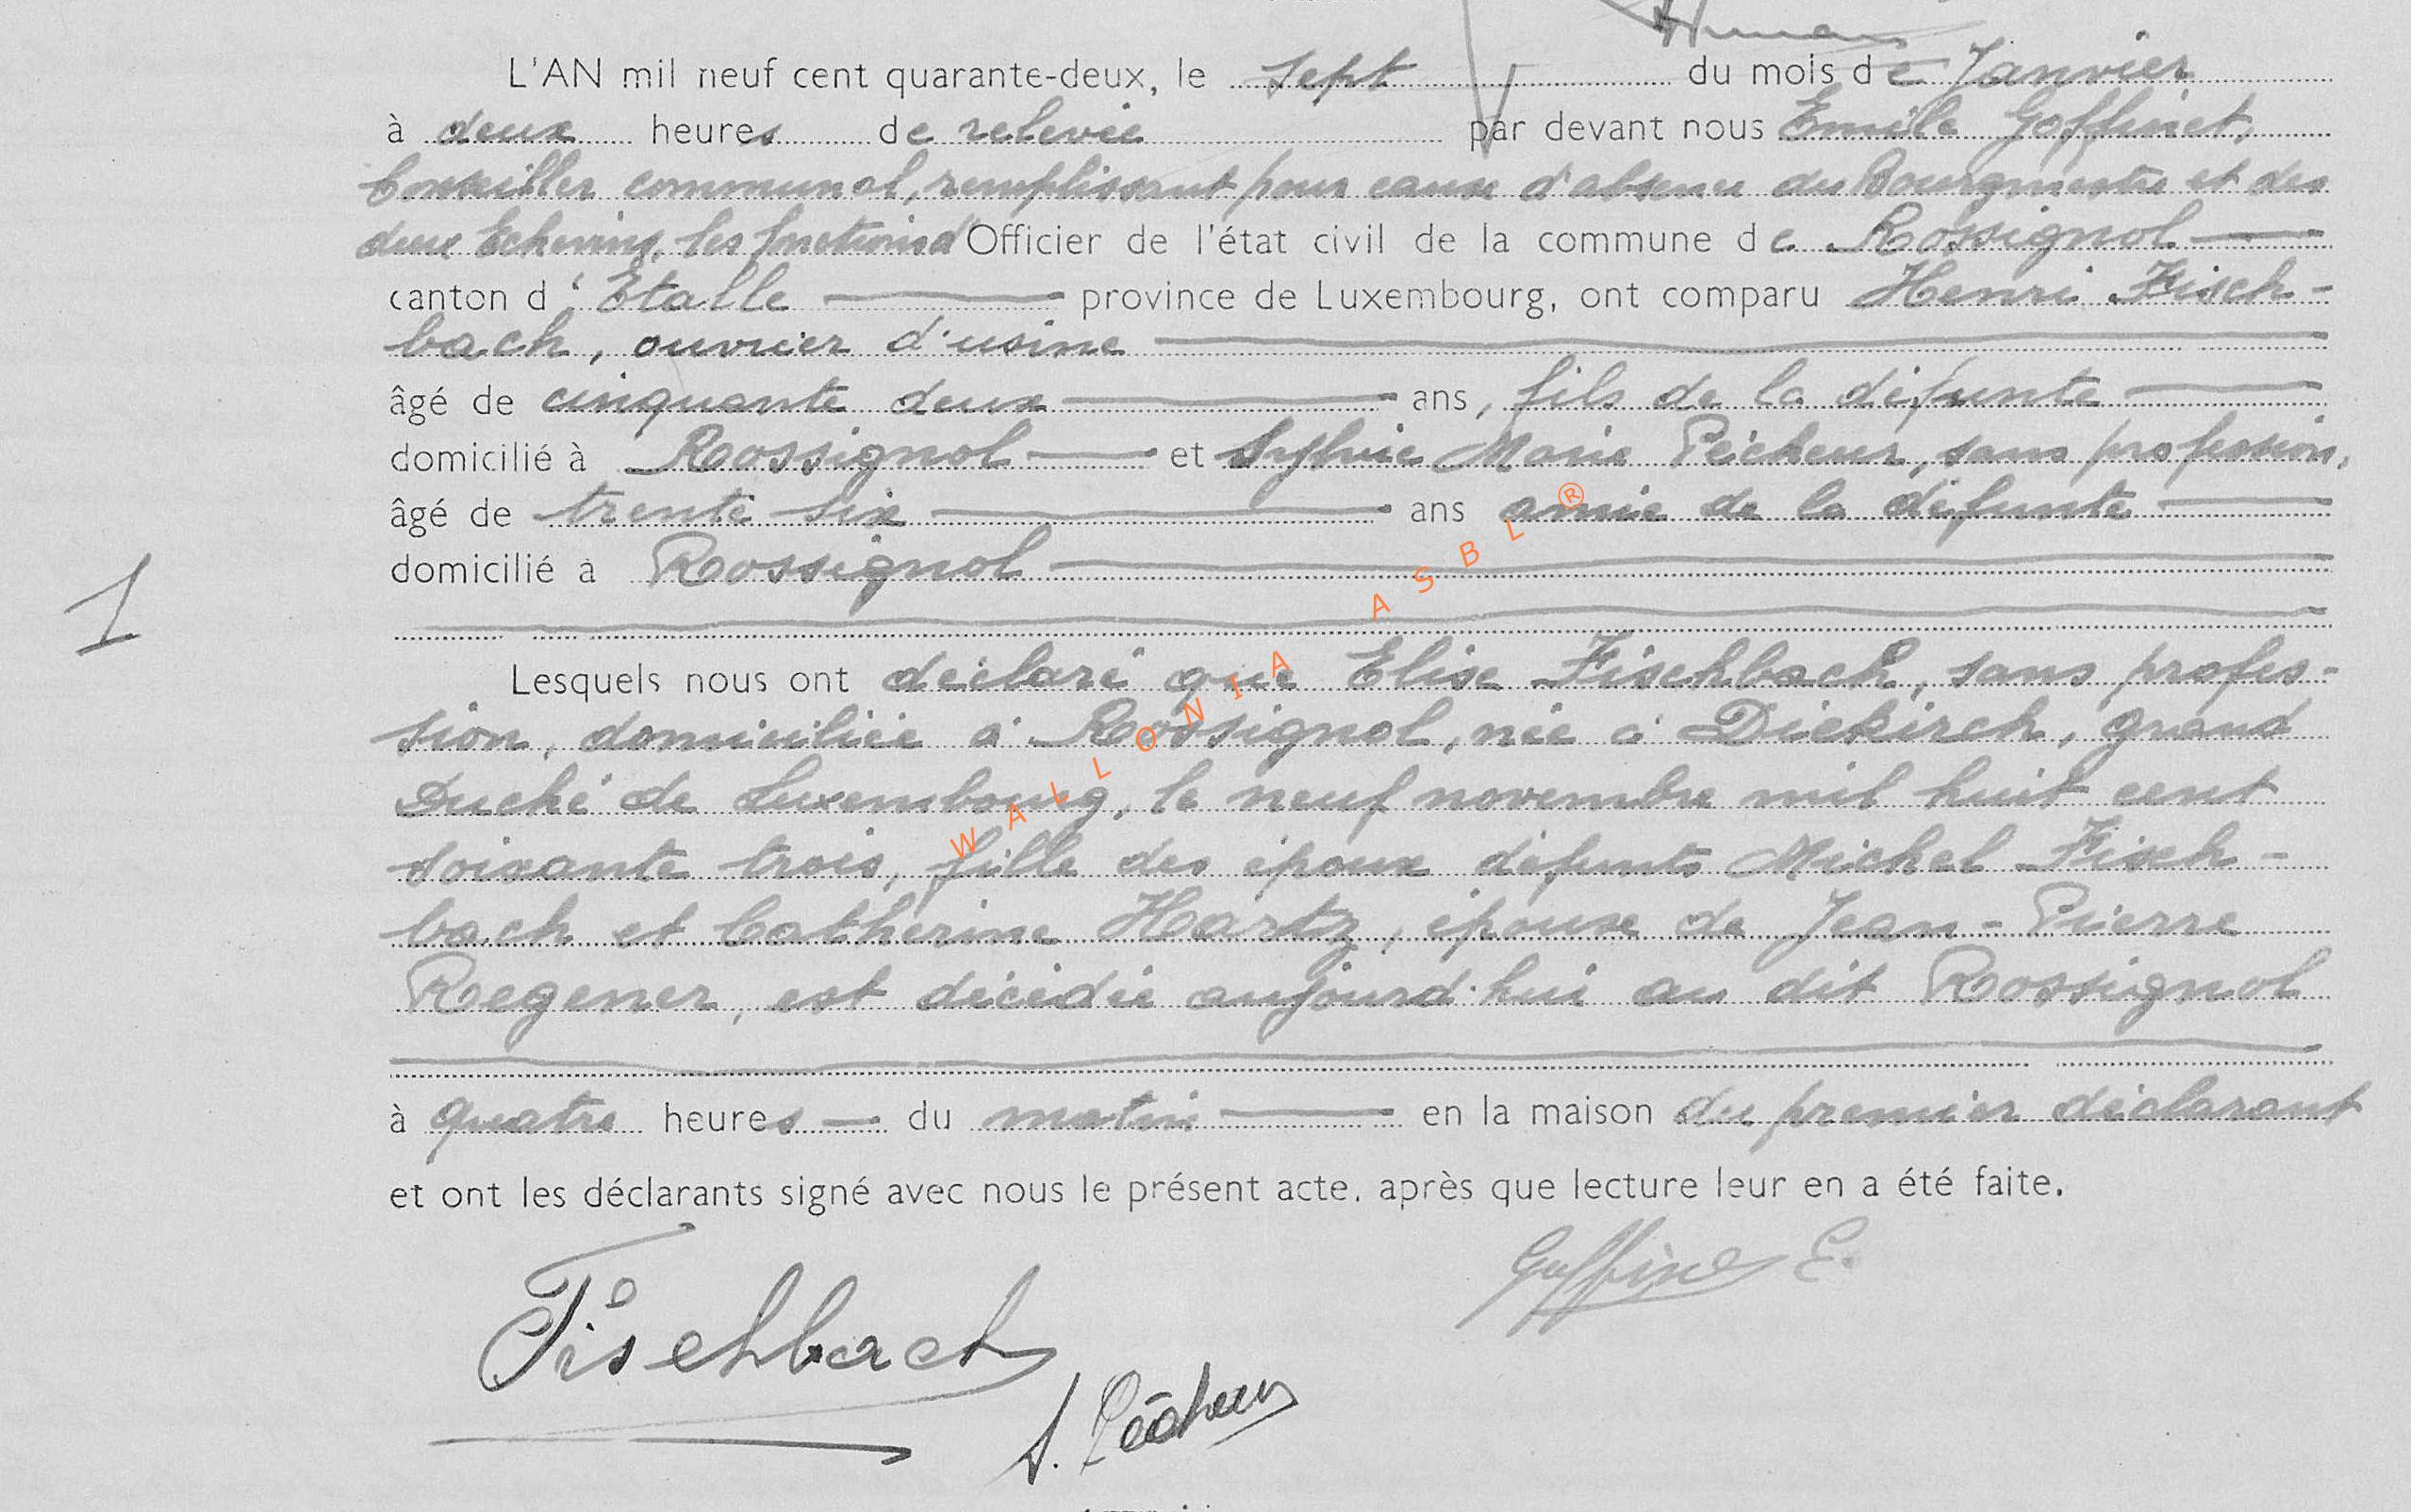 L'AN mil neuf cent quarante-deux, le sept du mois de Janvier
à deux heures de relevée par devant nous Emile Goffinet,
Conseiller communal, remplissant pour cause d'absence du Bourgmestre et des
deux Echevins, les fonctions d'Officier de l'état civil de la commune de Rossignol
canton d'Etalle province de Luxembourg, ont comparu Henri Fisch-
bach, ouvrier d'usine
âgé de cinquante deux ans, fils de la défunte
domicilié à Rossignol et Sylvie Marie Pêcheur, sans profession,
âgé de trente six ans amie de la défunte
domicilié à Rossignol
1
Lesquels nous ont déclaré que Elise Fischbach, sans profes-
sion, domiciliée à Rossignol, née à Diekirch, grand
Duché de Luxembourg, le neuf novembre mil huit cent
soixante trois, fille des époux défunts Michel Fisch-
bach et Catherine Hartz, épouse de Jean-Pierre
Regener, est décédée aujourd'hui au dit Rossignol
à quatre heures du matin en la maison du premier déclarant
et ont les déclarants signé avec nous le présent acte, après que lecture leur en a été faite.
Goffinet E.
Fischbach
S. Pêcheur
WALLONIA ASBL ®